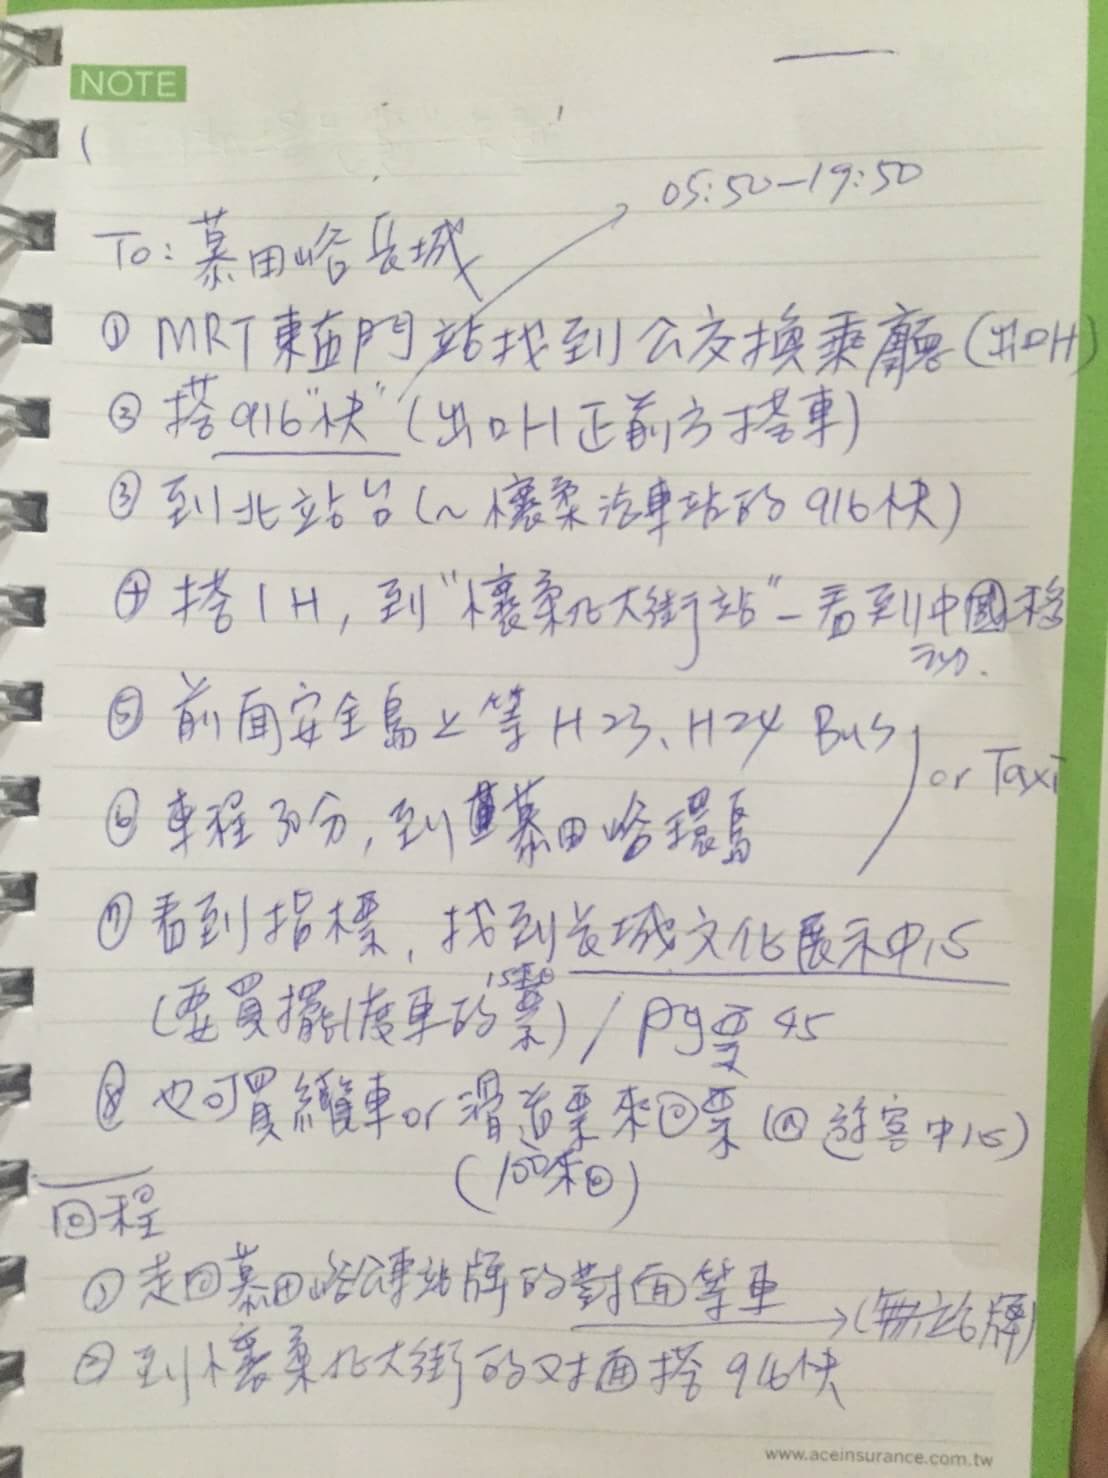 NOTE
05:50-19:50
To: 慕田峪長城
① MRT東直門站找到公交換乘廳(出口H)
② 搭916"快"(出口H正前方搭車)
③ 到北站台(~懷柔汽車站的916快)
④ 搭1H, 到"懷柔北大街站"-看到中國移
動.
⑤ 前面安全島上等H23、H24 Bus
or Taxi
⑥ 車程30分, 到慕田峪環島
⑦ 看到指標, 找到長城文化展示中心
(要買擺渡車的票) / 門票 45
15來回
⑧ 也可買纜車or滑道票來回票(@遊客中心)
(100來回)
回程
① 走回慕田峪公車站牌的對面等車→(無站牌)
② 到懷柔北大街的对面搭916快
www.aceinsurance.com.tw